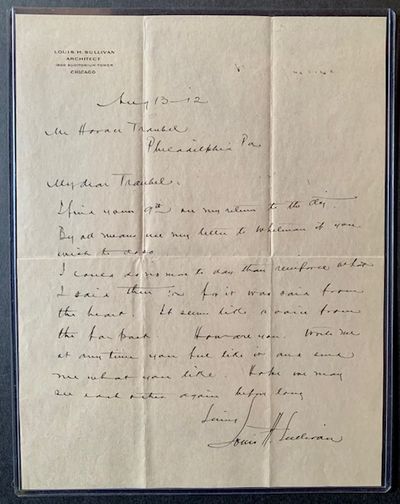 LOUIS H. SULLIVAN
ARCHITECT
1600 AUDITORIUM TOWER
CHICAGO
Aug 13-12
Mr Horace Traubel
Philadelphia Pa
My dear Traubel:
I find yours 9th on my return to the city.
By all means use my letter to Whitman if you
wish to do so.
I could do no more to day than reinforce what
I said then for it was said from
the heart. It seems like a voice from
the far past. How are you. Write me
at any time you feel like it and send
me what you like. Hope we may
see each other again before long
Louis H. Sullivan